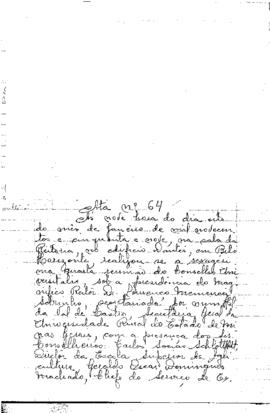 Ata nº 64
Às nove horas do dia oito
do mês de janeiro de mil novecen-
tos e cinquenta e nove, na sala da
Reitoria, no edifício Dantés, em Belo
Horizonte, realizou-se a sexagési-
ma quarta reunião do Conselho Uni-
versitário, sob a presidencia do Mag-
nífico Reitor Dr. Lourenço Menicucci
Sobrinho, secretariada por
da Val de Castro, Secretária Geral da
Universidade Rural do Estado de Mi-
nas Gerais, com a presença dos srs.
Conselheiros: Carlos Socías Schlottfeldt,
Diretor da Escola Superior de Agri-
cultura, Geraldo Oscar Domingues
Machado, Chefe do Serviço de Ex.